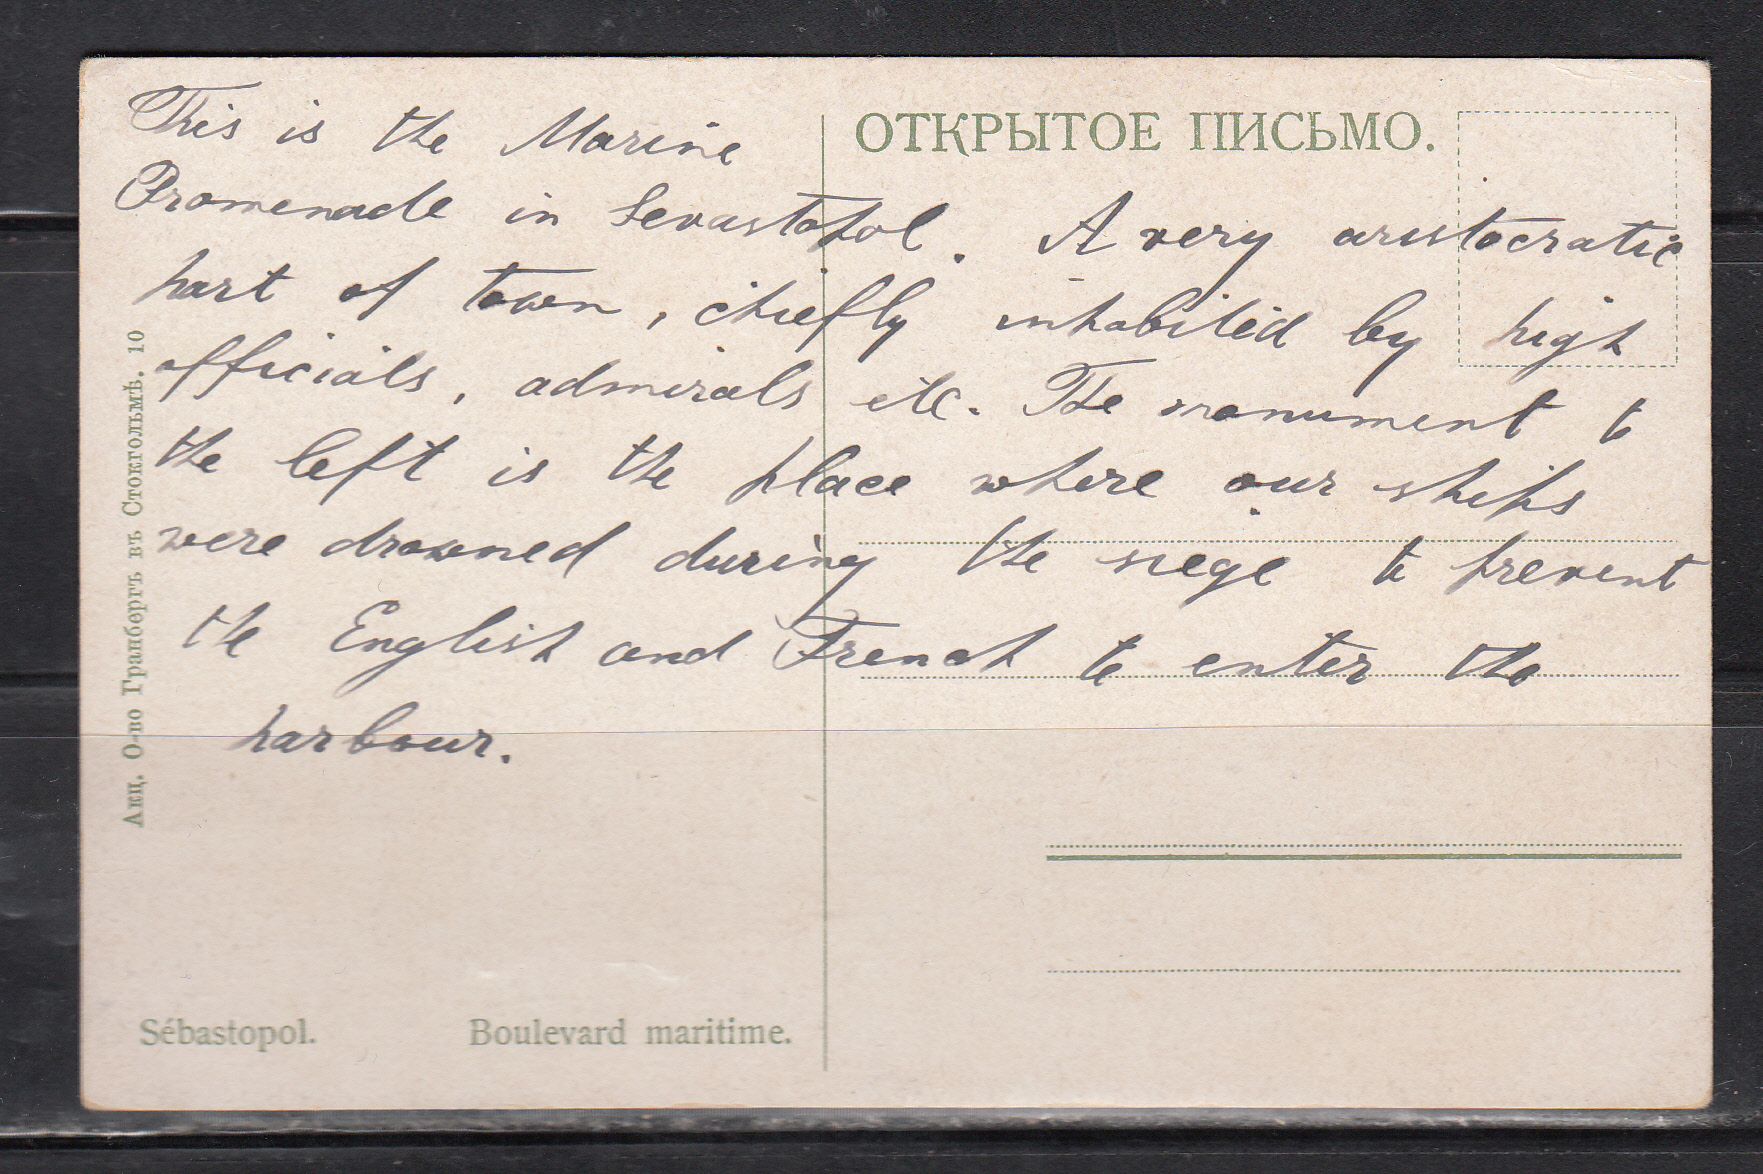 This is the Marine
ОТКРЫТОЕ ПИСЬМО.
Promenade in Sevastopol. A very aristocratic
part of town, chiefly inhabited by high
officials, admirals etc. The monument to
the left is the place where our ships
were drowned during the siege to prevent
the English and French to enter the
harbour.
Акц. О-во Гранбергъ въ Стокгольмѣ. 10
Sébastopol. Boulevard maritime.